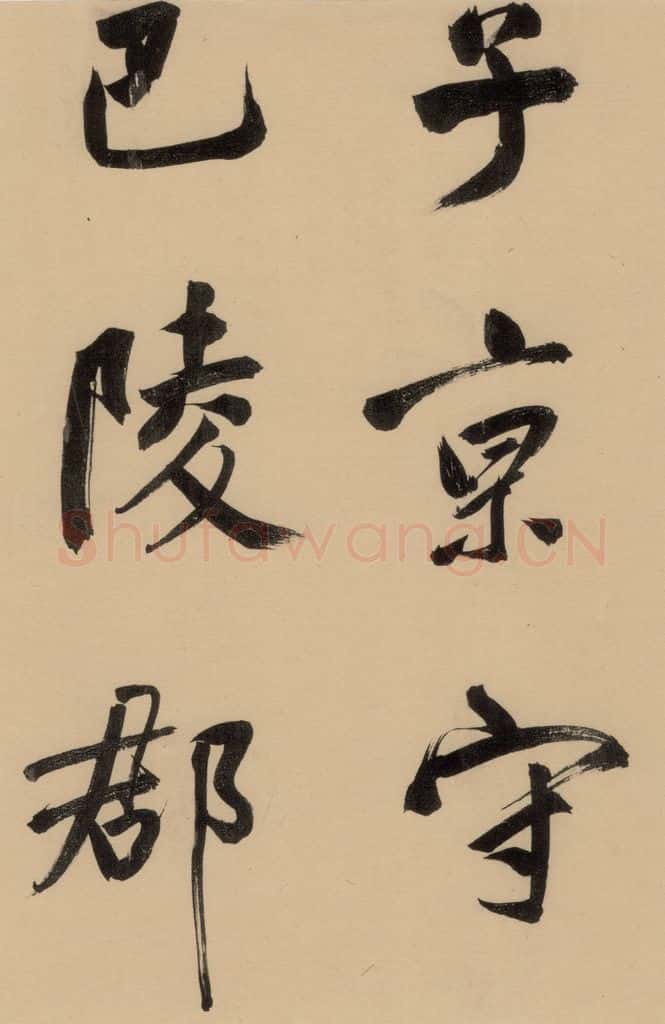 子京守
巴陵郡
Shufawang.CN